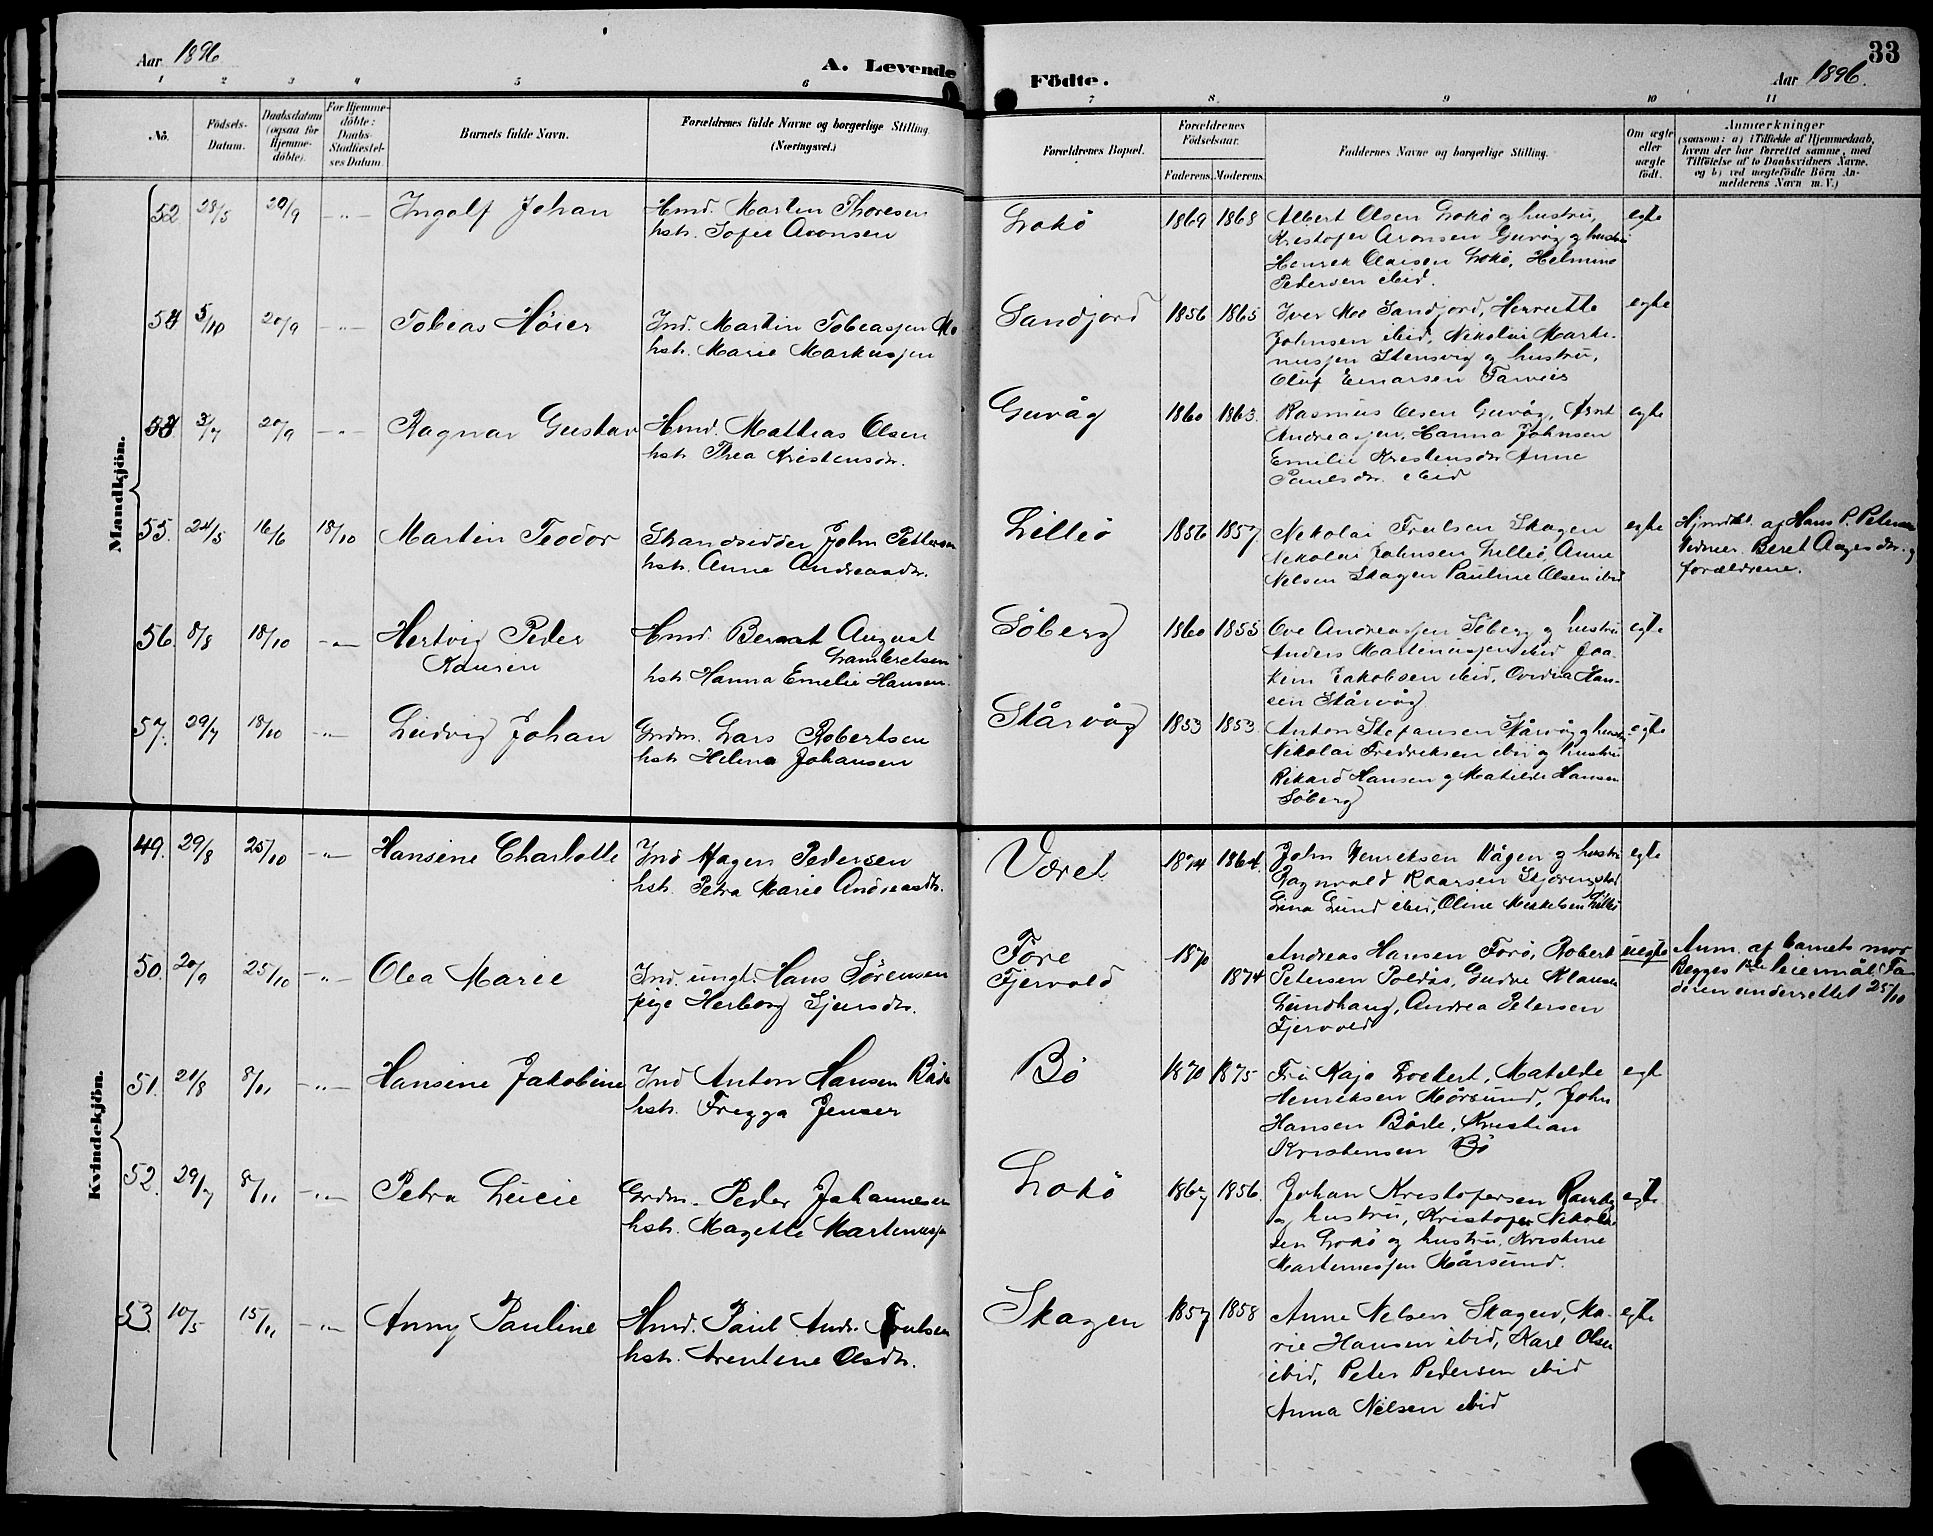 Aar 1896
A. Levende Födte.
33
Aar 1896.
1 2 3 4 5 6 7 8. 9 10 11
No.
Födsels-
Datum.
Daabsdatum
(ogsaa for
Hjemme-
döbte).
For Hjemme-
döbte:
Daabs-
Stadfæstel-
ses Datum.
Barnets fulde Navn.
Forældrenes fulde Navne og borgerlige Stilling.
(Næringsvei.)
Forældrenes Bopæl.
Forældrenes
Födselsaar.
Faderens. Moderens.
Faddernes Navne og borgerlige Stilling.
Om ægte
eller
uægte
födt.
Anmærkninger
(saasom: a) i Tilfælde af Hjemmedaab,
hvem der har forrettet samme, med
Tilföielse af to Daabsvidners Navne.
og b) ved uægtefödte Börn An-
melderens Navn m. V.)
Mandkjön.
52 28/5 20/9 -"- Ingolf Johan Hmd. Martin Thoresen
hstr. Sofie Aronsen
Lokö 1869 1868 Albert Olsen Lokö og hustru, egte
Kristofer Aronsen Guvåg og hustru
Henrik Olaisen Lokö, Helmine
Pedersen ibid.
54 5/10 20/9 -"- Tobias Höier Ind. Martin Tobiassen Mo
hstr. Marie Markussen
Sandjord 1856 1865 Iver Moe Sandjord, egte
Johnsen ibid, Nikolai Marti-
nussen Stensvig og hustru,
Oluf Einarsen
53 3/7 20/9 -"- Ragnar Gustav Hmd. Mathias Olsen
hstr. Thea Kristensdr.
Guvåg 1860 1863. Rasmus Olsen Guvåg, Arnt egte
Andreassen, Hanna Johnsen
Emilie Kristensdr Anne
Paulsdr. ibid
55. 24/5 16/6 18/10 Martin Teodor Strandsidder John Pettersen
hstr. Anne Andreasdr.
Lilleö 1856 1857 Nikolai Trulsen Skagen egte
Nikolai Johnsen Lilleö Anne
Nilsen Skagen Pauline Olsen ibid
Hjmdbt. af Hans P. Petersen
Vidner. Beret Aagesdr. og
forældrene.
56. 8/8 18/10 -"- Hertvig Peder
Kaursin
Hmd. Bernt August
Lambretsen
hstr. Hanna Emelie Hansen.
Söberg 1860 1855 Ove Andreassen Söberg og hustru egte
Anders Martinussen ibid Joa-
kim Jakobsen ibid, Ovidia Han-
sen Skårvåg
57. 29/7 18/10 -"- Ludvig Johan Grdm. Lars Robertsen
hstr. Helena Johansen
Skårvåg 1853 1853. Anton Stefansen Skårvåg og hustru egte
Nikolai Fredriksen ibid og hustru
Rikard Hansen og Matilde Hansen
Söberg
Kvindekjön.
49. 29/8 25/10 -"- Hansine Charlotte Ind Hagen Pedersen
hstr. Petra Marie Andreasdtr.
Været 1874 1864. John Henriksen Vågen og hustru egte
Ragnvald Kaarsen
Lina Lund ibid, Oline Mikkelsen Lilleö
50. 20/9 25/10 -"- Olea Marie Ind. ungk. Hans Sörensen
pige Herborg Sjursdr.
Före
Fjervold
1870
1874
Andreas Hansen Forö, Robert uegte
Petersen Poldås, Klausen
Lundhaug, Andrea Petersen
Fjervold
Anm. af barnets mor
Begges 1ste leiermål. Fa-
deren underrettet 25/10
51. 21/8 8/11 -"- Hansine Jakobine Ind Anton Hansen
hstr. Frigga Jensen
Bö 1870 1875 Fru Kaja Lockert, Matilde egt
Henriksen Mårsund, John
Hansen Börle, Kristian
Kristensen Bö
52. 29/7 8/11 -"- Petra Lucie Grdm. Peder Johannesen
hstr. Magette Martinussen
Lokö 1867 1856. Johan Kristofersen egte
og hustru, Kristofer Nikolai-
sen Lokö og hustru. Kristine
Martinussen Mårsund.
53. 10/5 15/11 -"- Anny Pauline Hmd. Paul Andr. Trulsen
hstr. Arentine Olsdtr.
Skagen 1857 1858 Anne Nilsen Skagen, Ma- egte
rie Hansen ibid, Karl Olsen
ibid, Peter Pedersen ibid
Anna Nilsen ibid